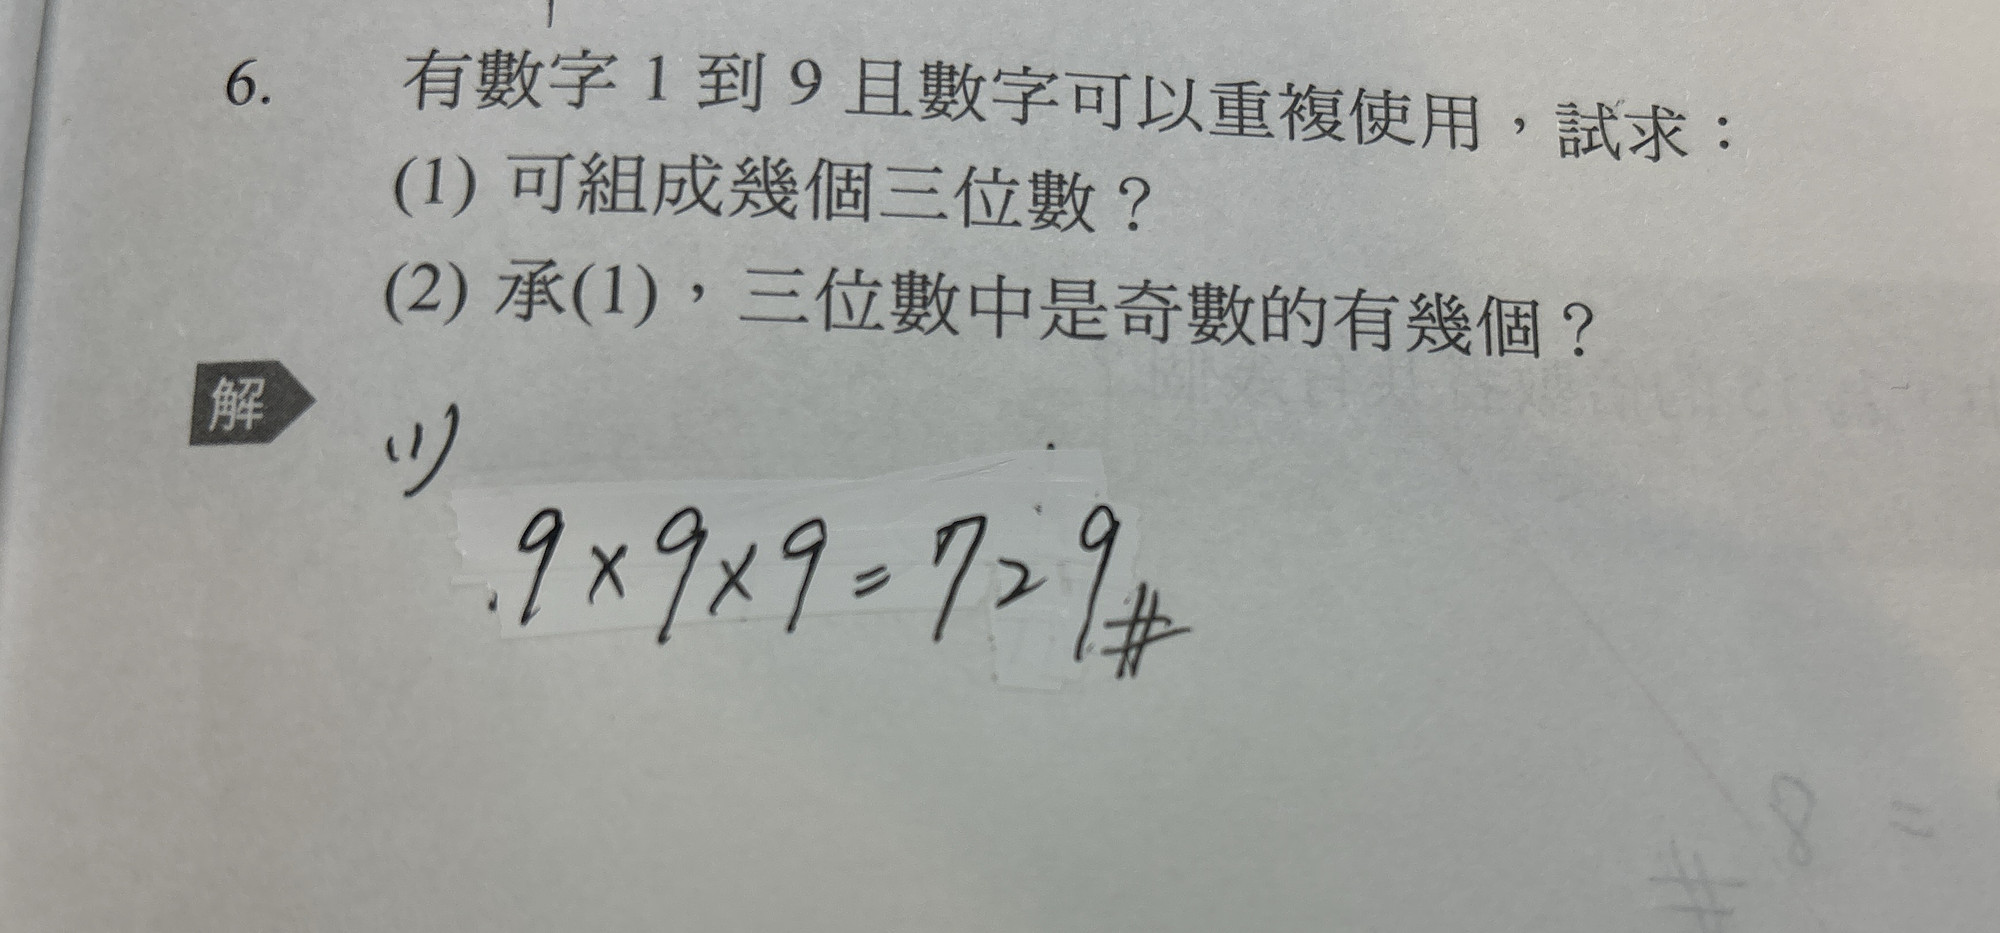 6. 有數字 1 到 9 且數字可以重複使用，試求：
(1) 可組成幾個三位數？
(2) 承(1)，三位數中是奇數的有幾個？
解
(1)
9×9×9=729#
=8#